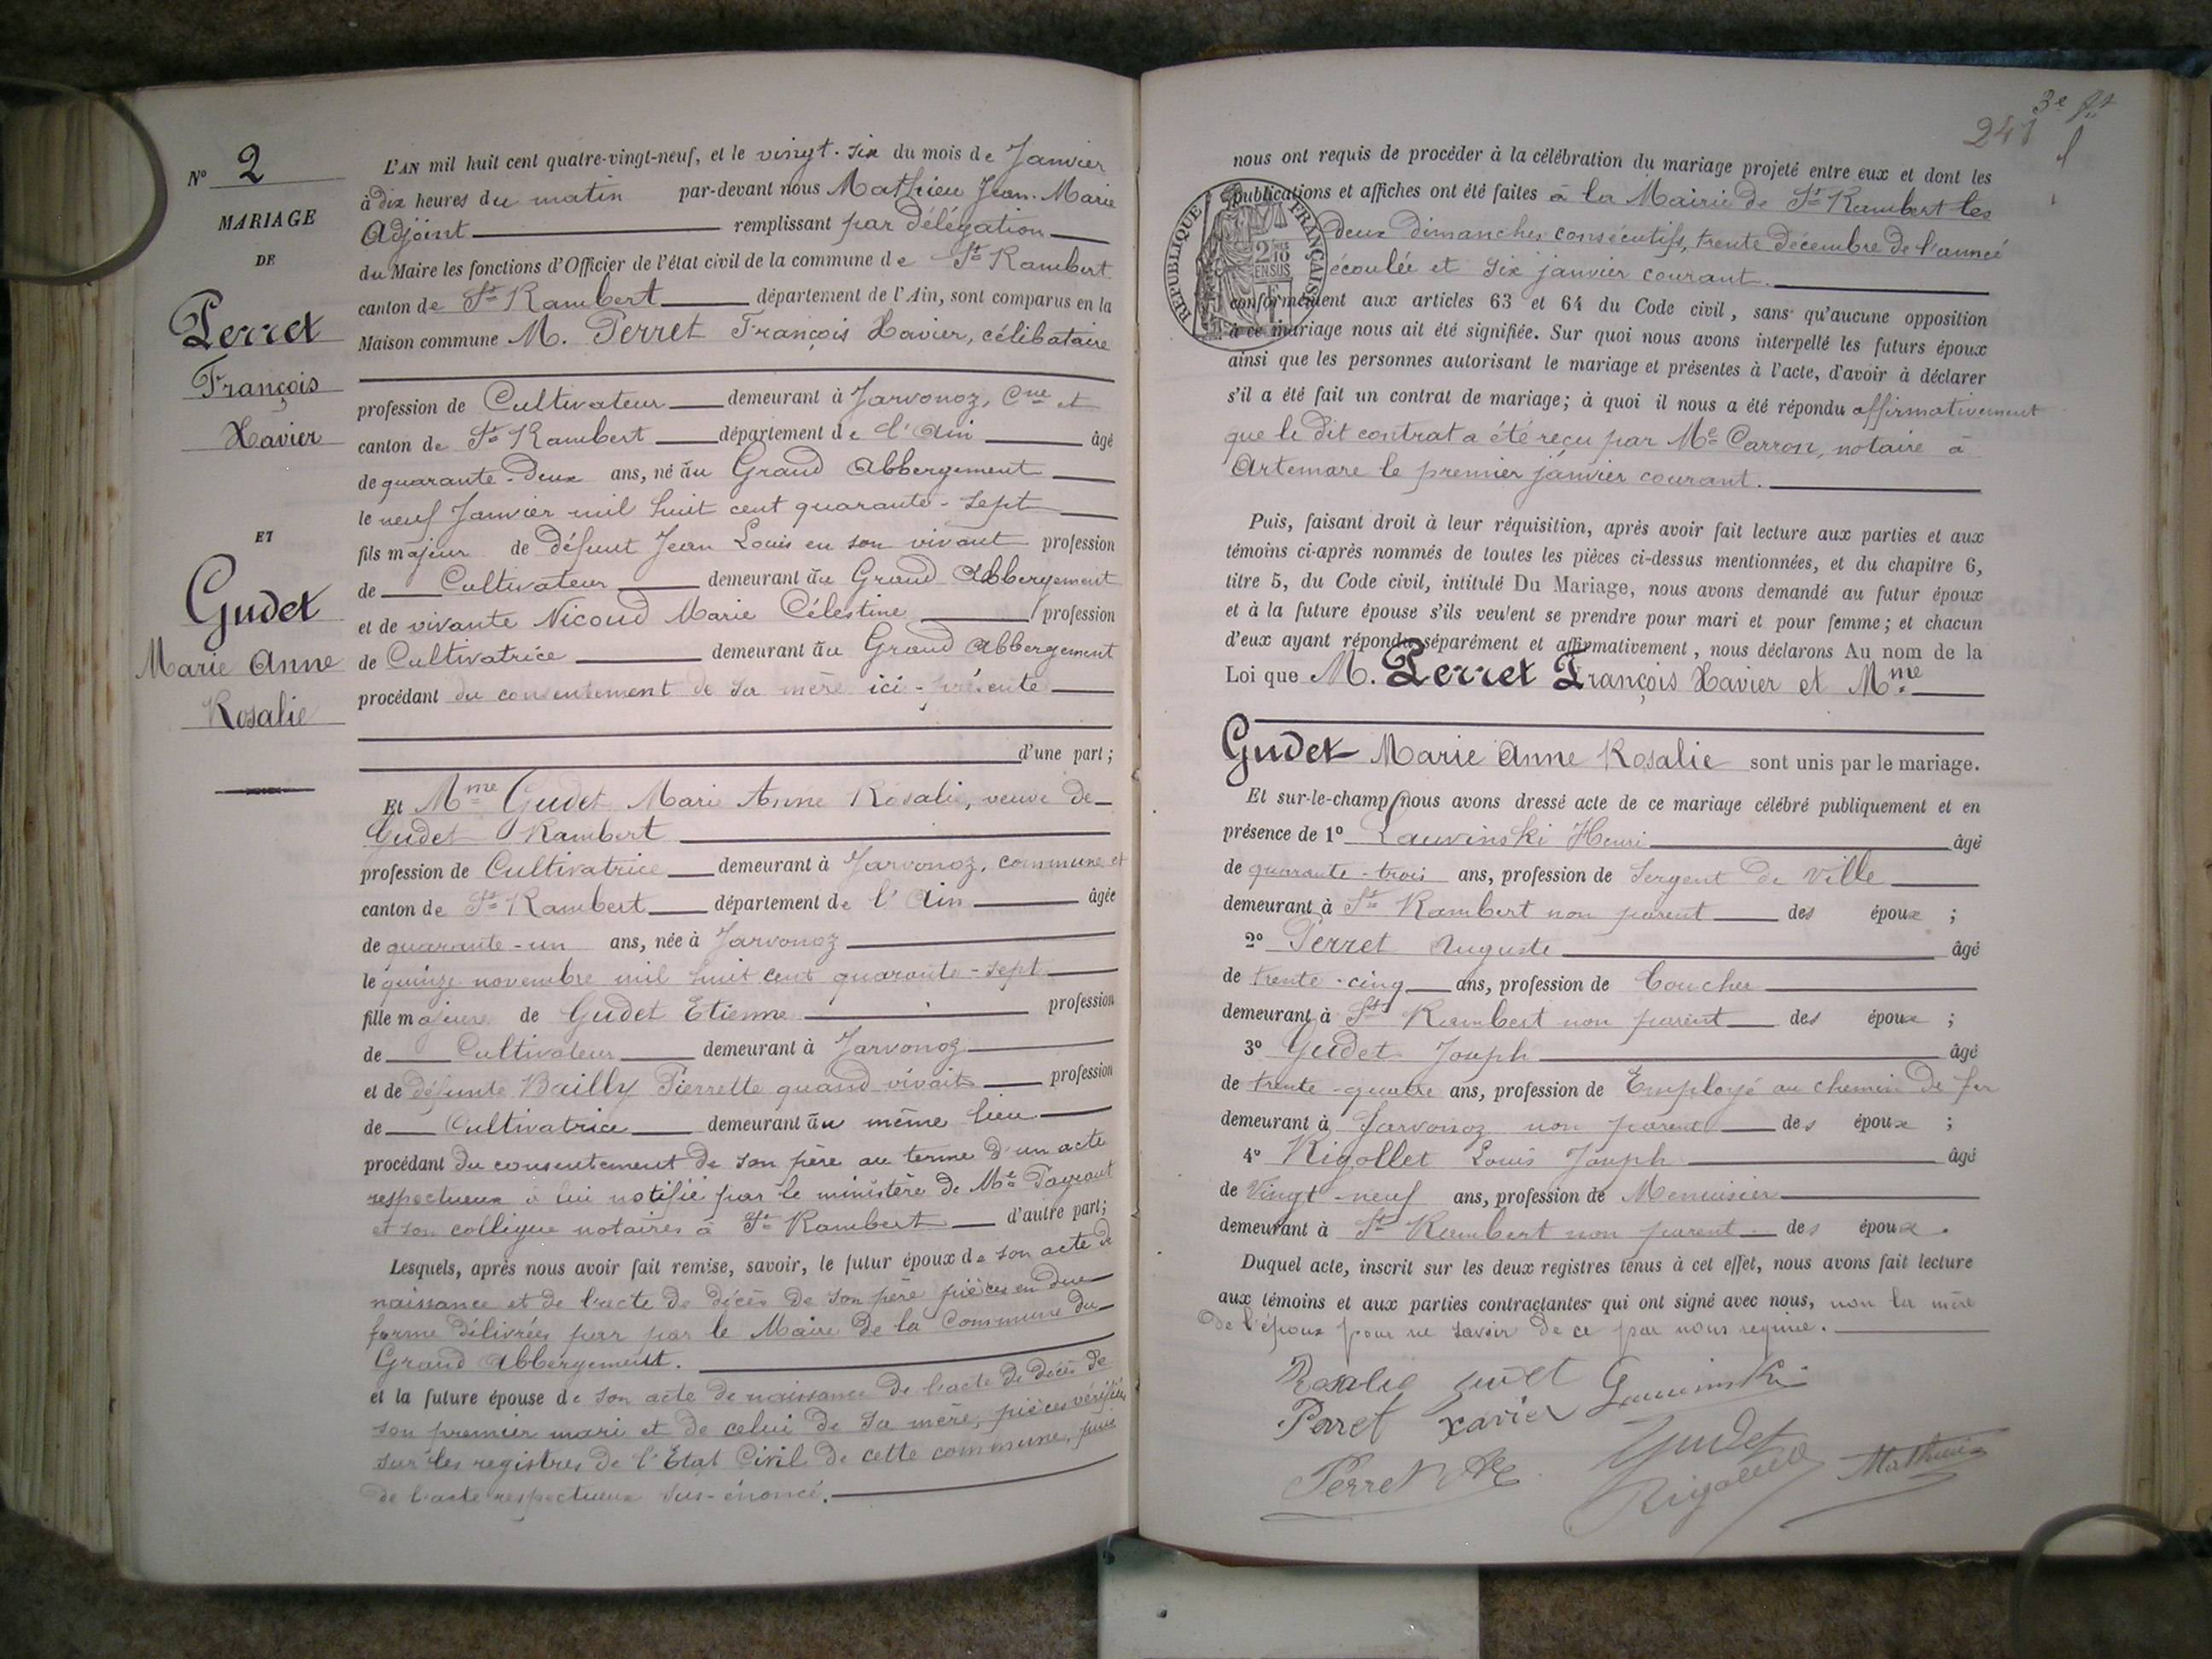 N° 2
MARIAGE
DE
Perret
François
Xavier
ET
Gudet
Marie Anne
Rosalie
L'AN mil huit cent quatre-vingt-neuf, et le vingt-six du mois de Janvier
à dix heures du matin par-devant nous Mathieu Jean-Marie
Adjoint remplissant par délégation
du Maire les fonctions d'Officier de l'état civil de la commune de St Rambert
canton de St Rambert département de l'Ain, sont comparus en la
Maison commune M. Perret François Xavier, célibataire
profession de Cultivateur demeurant à Javornoz, Cne et
canton de St Rambert département de l'Ain âgé
de quarante-deux ans, né au Grand Abbergement
le neuf Janvier mil huit cent quarante-sept
fils majeur de défunt Jean Louis en son vivant profession
de Cultivateur demeurant au Grand Abbergement
et de vivante Nicoud Marie Célestine profession
de Cultivatrice demeurant au Grand Abbergement
procédant du consentement de sa mère ici-présente
d'une part;
Et Mme Gudet Marie Anne Rosalie, veuve de
Gudet Rambert
profession de Cultivatrice demeurant à Javornoz, commune et
canton de St Rambert département de l'Ain âgée
de quarante-un ans, née à Javornoz
le quinze novembre mil huit cent quarante-sept
fille majeure de Gudet Etienne profession
de Cultivateur demeurant à Javornoz
et de défunte Bailly Pierrette quand vivait profession
de Cultivatrice demeurant au même lieu
procédant du consentement de son père au terme d'un acte
respectueux à lui notifié par le ministère de Me
et son collègue notaires à St Rambert d'autre part;
Lesquels, après nous avoir fait remise, savoir, le futur époux de son acte de
naissance et de l'acte de décès de son père pièces en due
forme délivrées par par le Maire de la Commune du
Grand Abbergement.
et la future épouse de son acte de naissance de l'acte de décès de
son premier mari et de celui de sa mère, pièces vérifiées
sur les registres de l'Etat Civil de cette commune, puis
de l'acte respectueux sus-énoncé.
241 3e
nous ont requis de procéder à la célébration du mariage projeté entre eux et dont les
publications et affiches ont été faites à la Mairie de St Rambert les
deux dimanches consécutifs, trente décembre de l'année
écoulée et six janvier courant.
REPUBLIQUE FRANÇAISE
2/10 EN SUS
conformément aux articles 63 et 64 du Code civil, sans qu'aucune opposition
à ce mariage nous ait été signifiée. Sur quoi nous avons interpellé les futurs époux
ainsi que les personnes autorisant le mariage et présentes à l'acte, d'avoir à déclarer
s'il a été fait un contrat de mariage; à quoi il nous a été répondu affirmativement
que le dit contrat a été reçu par Me Carron, notaire à
Artemare le premier janvier courant.
Puis, faisant droit à leur réquisition, après avoir fait lecture aux parties et aux
témoins ci-après nommés de toutes les pièces ci-dessus mentionnées, et du chapitre 6,
titre 5, du Code civil, intitulé Du Mariage, nous avons demandé au futur époux
et à la future épouse s'ils veulent se prendre pour mari et pour femme; et chacun
d'eux ayant répondu séparément et affirmativement, nous déclarons Au nom de la
Loi que M. Perret François Xavier et Mme
Gudet Marie Anne Rosalie sont unis par le mariage.
Et sur-le-champ nous avons dressé acte de ce mariage célébré publiquement et en
présence de 1° Lauvinski Henri âgé
de quarante-trois ans, profession de Sergent de Ville
demeurant à St Rambert non parent des époux ;
2° Perret Auguste âgé
de trente-cinq ans, profession de Coucher
demeurant à St Rambert non parent des époux ;
3° Gudet Joseph âgé
de trente-quatre ans, profession de Employé au chemin de fer
demeurant à Javornoz non parent des époux ;
4° Rigollet Louis Joseph âgé
de Vingt-neuf ans, profession de Menuisier
demeurant à St Rambert non parent des époux.
Duquel acte, inscrit sur les deux registres tenus à cet effet, nous avons fait lecture
aux témoins et aux parties contractantes qui ont signé avec nous, non la mère
de l'époux pour ne savoir de ce par nous requise.
Rosalie Gudet Lauvinski
Perret Xavier
Gudet
Perret
Rigollet Mathieu